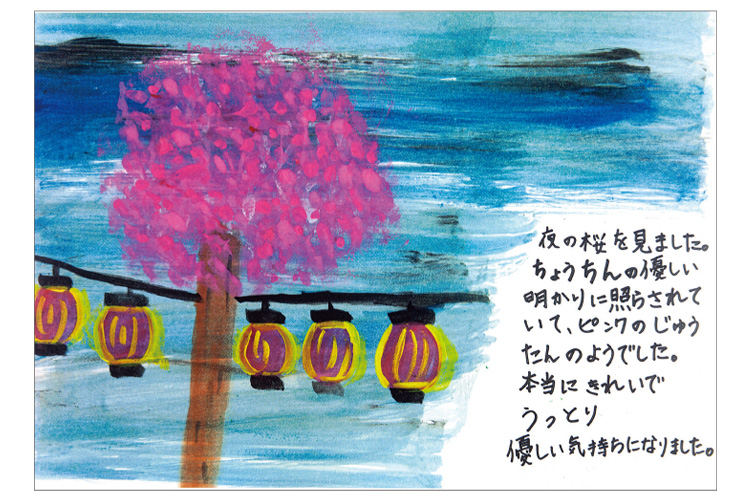 夜の桜を見ました。
ちょうちんの優しい
明かりに照らされて
いて、ピンクのじゅう
たんのようでした。
本当にきれいで
うっとり
優しい気持ちになりました。